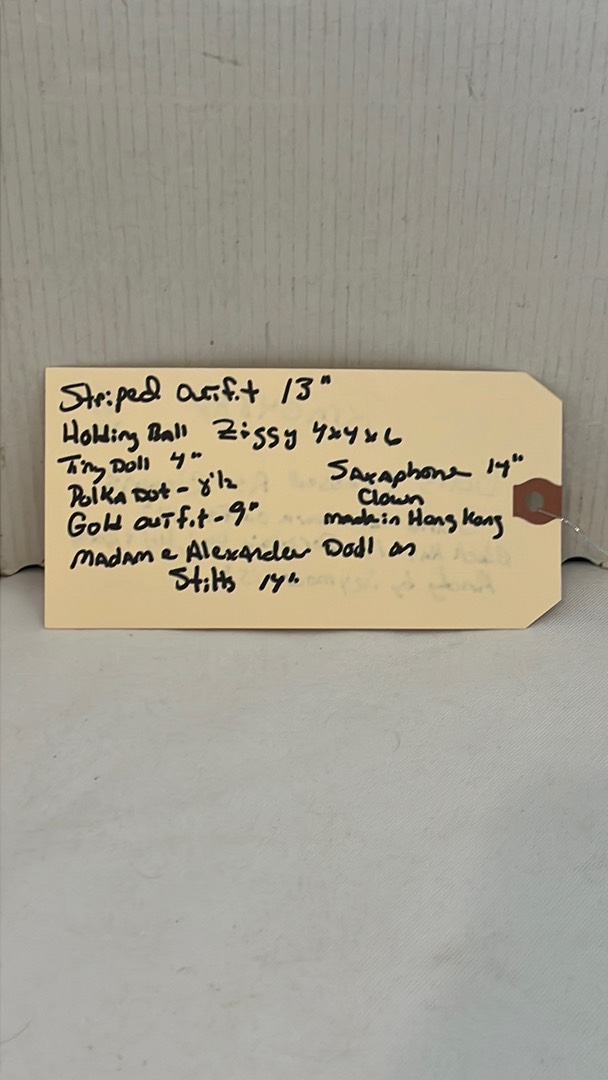 Striped outfit 13"
Holding Ball Ziggy 4x4x6
Tiny Doll 4"
Saxaphone 14"
Polka Dot - 8 1/2
Clown
Gold outfit - 9"
made in Hong Kong
Madame Alexander Doll on
Stilts 14"